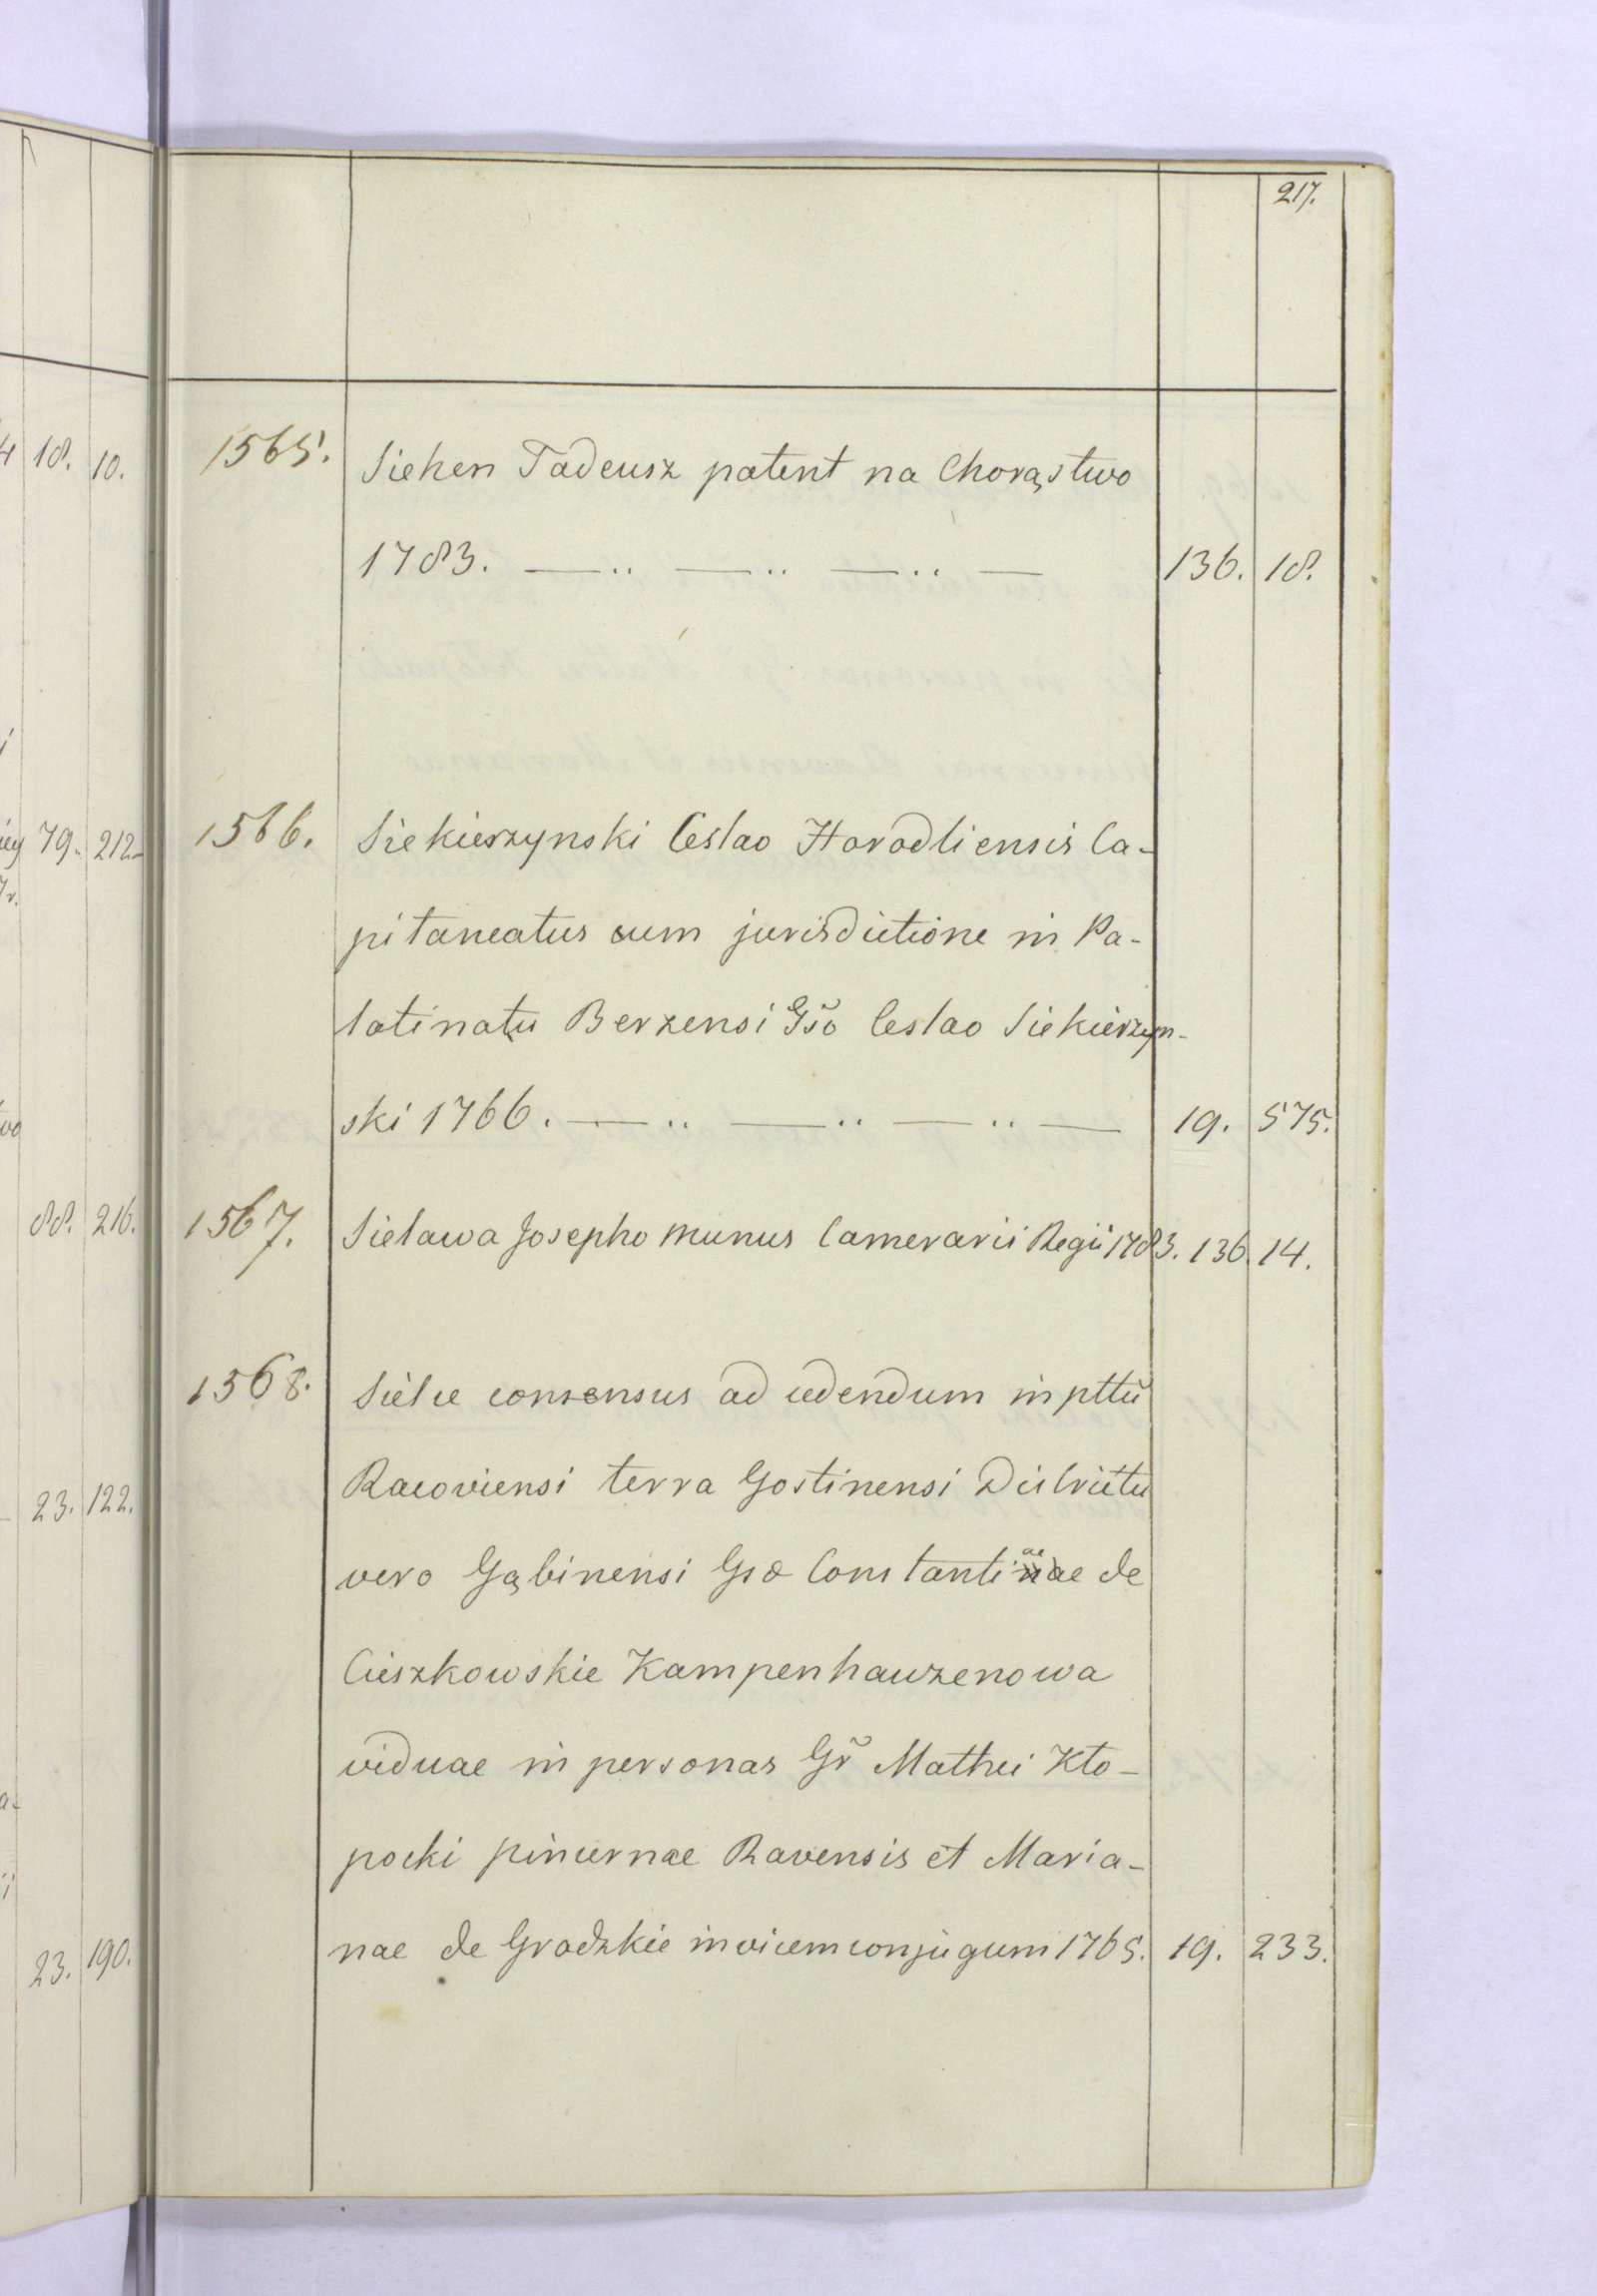 217.
1565. Siehen Tadeusz patent na Chorąstwo
1783. —.. —.. —.. — 136. 18.
1566. Siekierzynski Ceslao Horodliensis Ca-
pitaneatus cum jurisdictione in Pa-
latinatu Berzensi Gšo Ceslao Siekierzyn-
ski 1766. —.. —.. —.. — 19. 575.
1567. Sielawa Josepho munus Camerarii Regii 1783. 136. 14.
1568. Sielce consensus ad cedendum in pttũ
Racoviensi terra Gostinensi Districtu
vero Gąbinensi Gsae Constantinae de
Cieszkowskie Kampenhauzenowa
viduae in personas Gř Mathei Kło-
pocki pincernae Ravensis et Maria-
nae de Grodzkie invicem conjugum 1765. 19. 233.
18. 10.
79. 212.
88. 216.
23. 122.
23. 190.